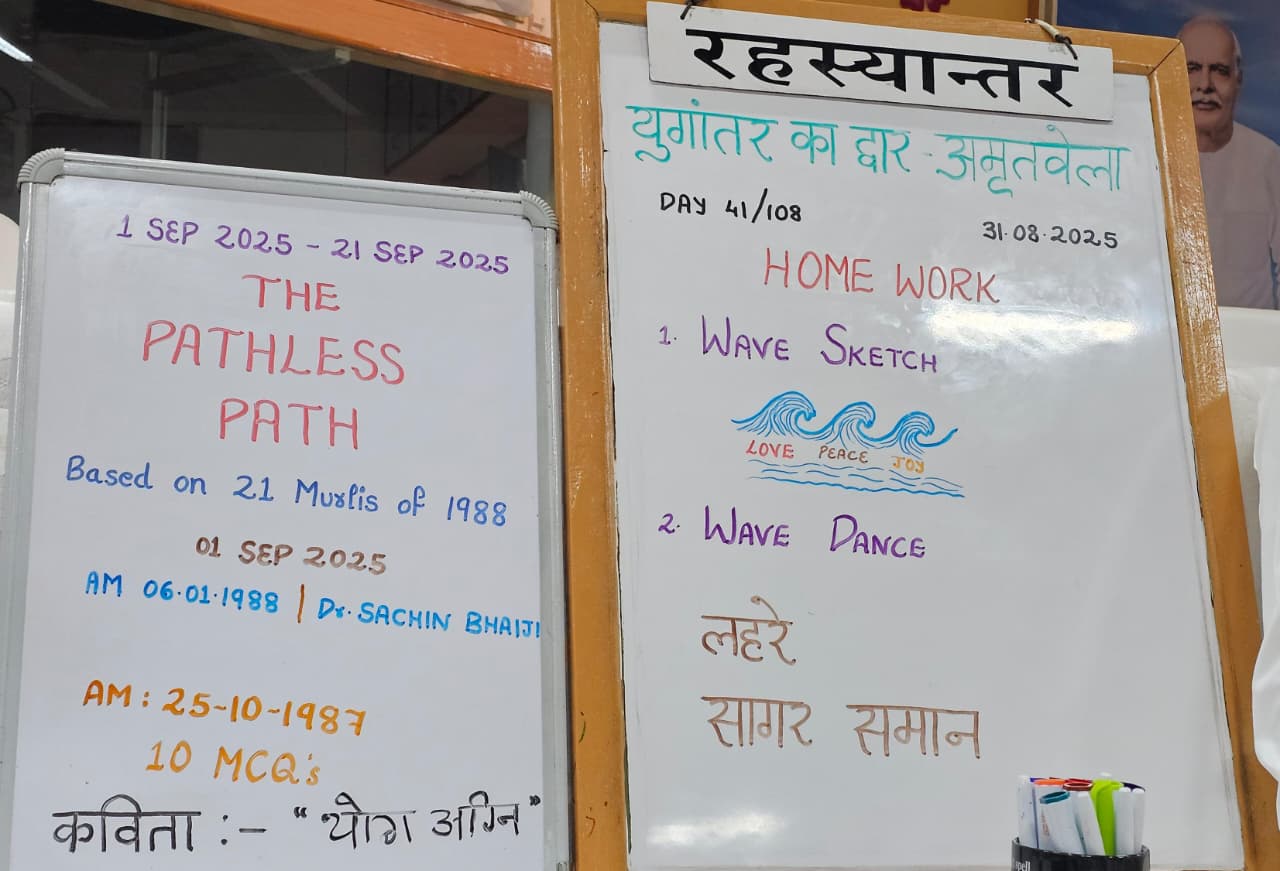 1 SEP 2025 - 21 SEP 2025
THE
PATHLESS
PATH
Based on 21 Murlis of 1988
01 SEP 2025
AM 06.01.1988 | Dr. SACHIN BHAIJI
AM : 25-10-1987
10 MCQ's
कविता :- "योग अग्नि"
रहस्यान्तर
युगांतर का द्वार - अमृतवेला
DAY 41/108
31.08.2025
HOME WORK
1. WAVE SKETCH
LOVE PEACE JOY
2. WAVE DANCE
लहरे
सागर समान